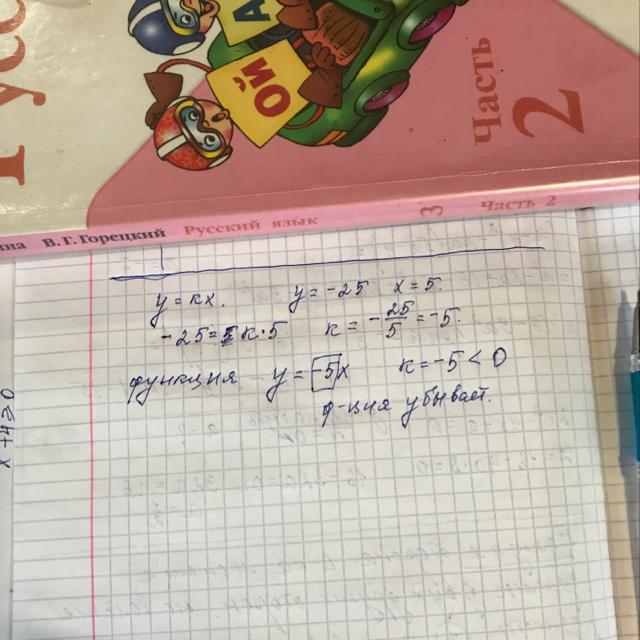 Русс
А
ОЙ
Часть
2
ина В. Г. Горецкий Русский язык 3 Часть 2
y = kx. y = -25 x = 5.
-25 = k·5 k = -25/5 = -5.
функция y = -5x k = -5 < 0
ф-ция убывает.
x + 4 ≥ 0